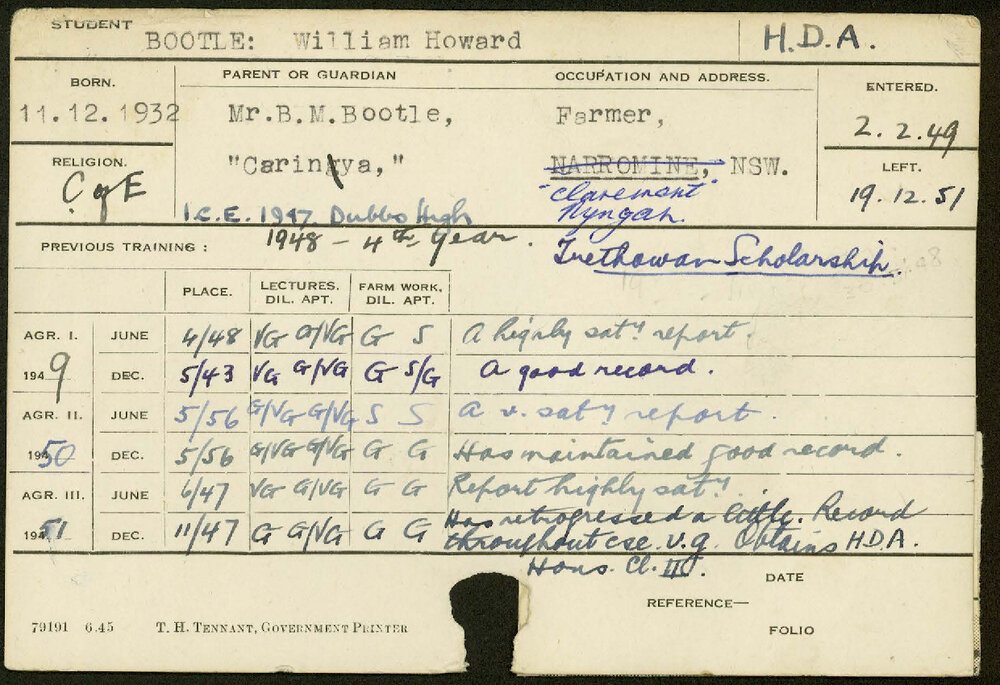 STUDENT
BOOTLE: William Howard H.D.A.
BORN. PARENT OR GUARDIAN OCCUPATION AND ADDRESS. ENTERED.
11.12.1932 Mr.B.M.Bootle, Farmer, 2.2.49
RELIGION. "Carinya," NARROMINE, NSW. LEFT.
C of E "Claremont" 19.12.51
Nyngan.
I.C.E. 1947 Dubbo High
PREVIOUS TRAINING : 1948 - 4th Year. Trethowan Scholarship.
PLACE. LECTURES. DIL. APT. FARM WORK. DIL. APT.
AGR. I. JUNE 4/48 VG G/VG G S A highly saty report.
1949 DEC. 5/43 VG G/VG G S/G A good record.
AGR. II. JUNE 5/56 G/VG G/VG S S A v. saty report.
1950 DEC. 5/56 G/VG G/VG G G Has maintained good record.
AGR. III. JUNE 6/47 VG G/VG G G Report highly saty.
1951 DEC. 11/47 G G/VG G G Has retrogressed a little. Record
throughout cse. v.g. Obtains H.D.A.
Hons. Cl. III.
DATE
REFERENCE—
FOLIO
79191 6.45 T. H. TENNANT, GOVERNMENT PRINTER